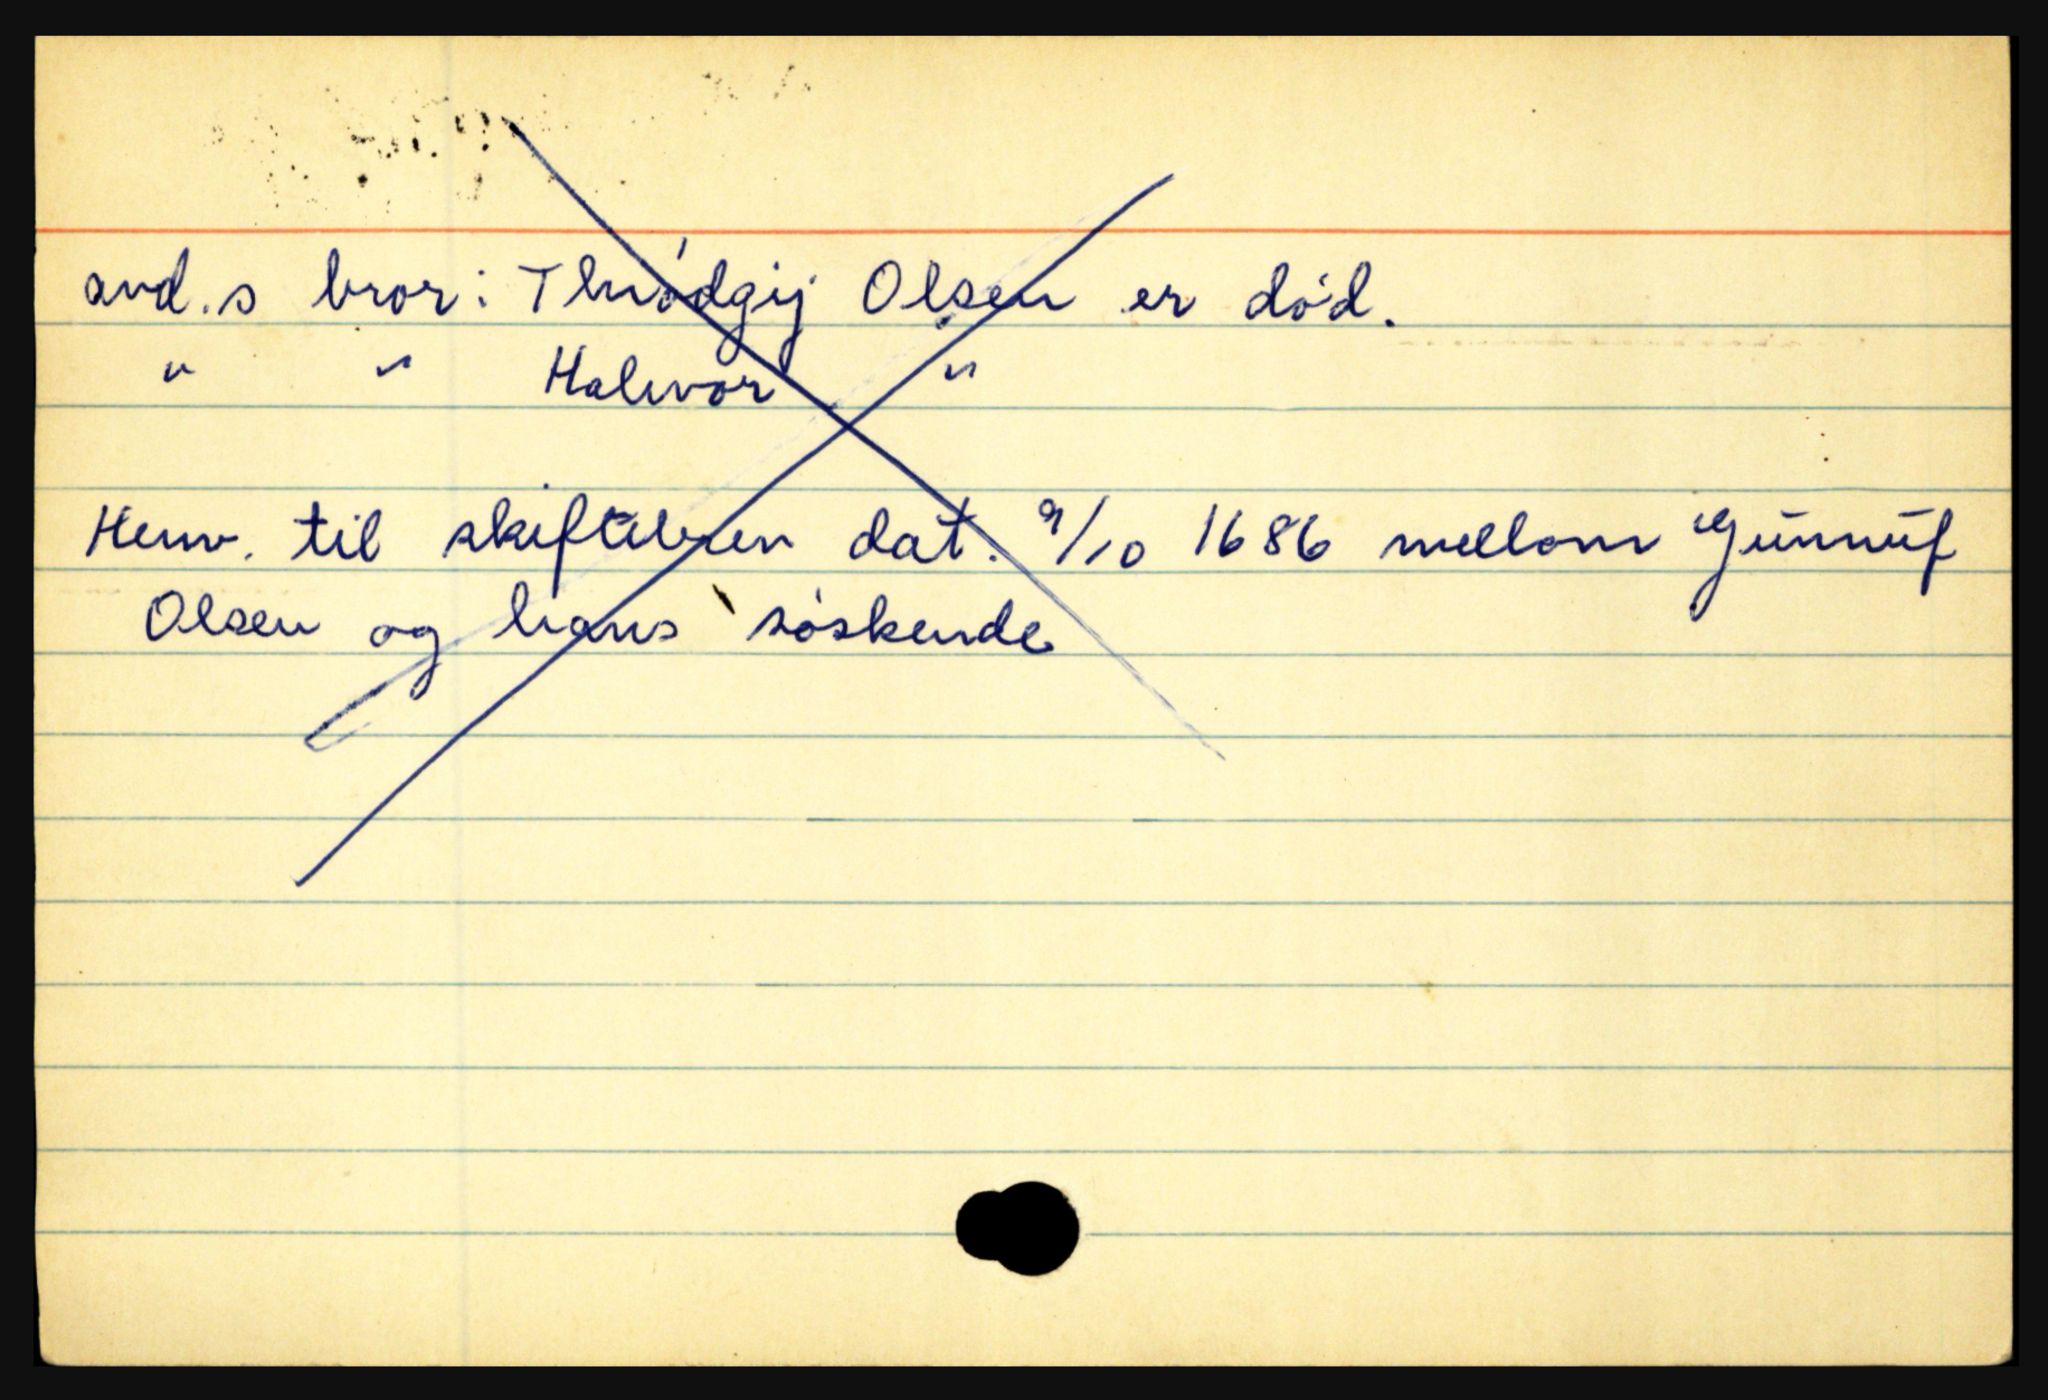 avd.s bror: Thródgij Olsen er død.
" " Halvor "
Henv. til skiftebrev dat. 9/10 1686 mellom Gunnuf
Olsen og hans søskende